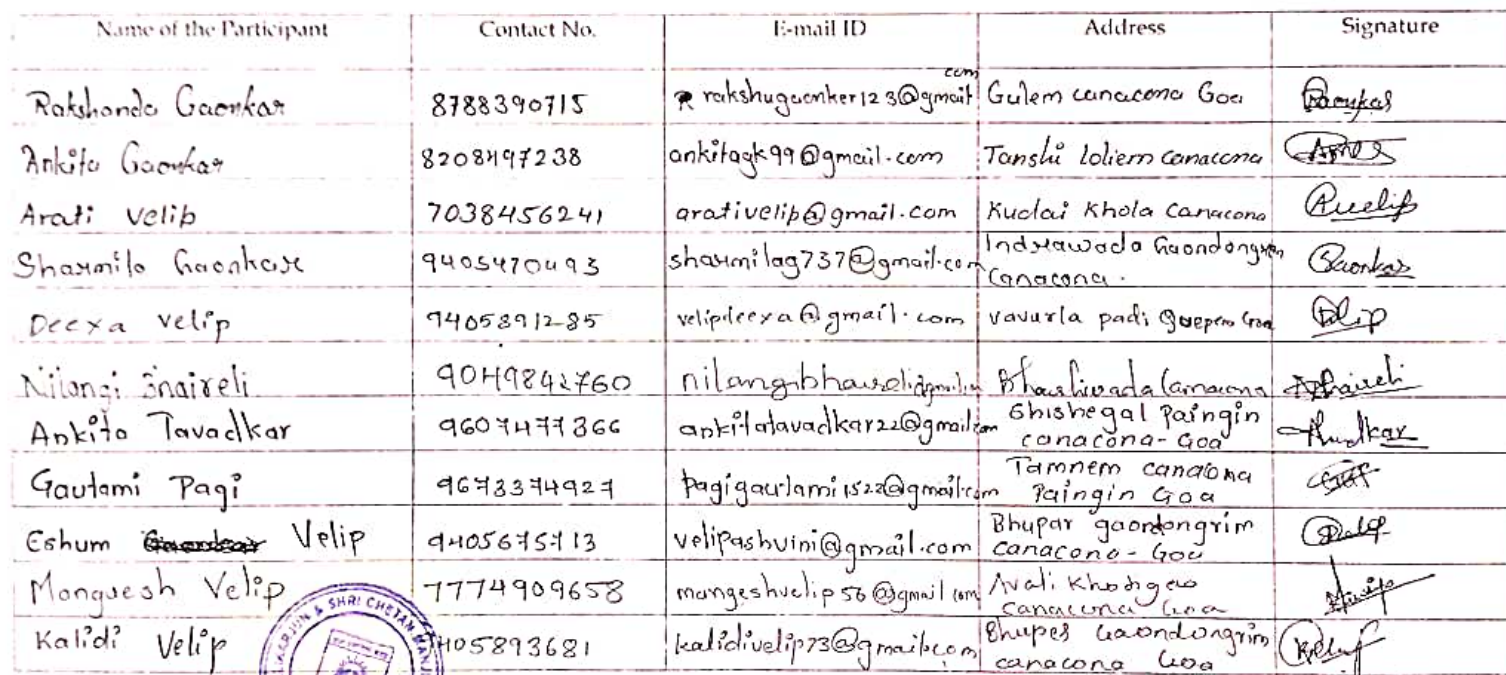 Name of the Participant Contact No. E-mail ID Address Signature
Rakshanda Gaonkar 8788390715 rakshugaonker123@gmail.com Gulem canacona Goa Gaonkar
Ankita Gaonkar 8208497238 ankitagk99@gmail.com Tanshi loliem canacona
Arati Velip 7038456241 arativelip@gmail.com Kudai Khola Canacona Avelip
Sharmila Gaonkar 9405470493 sharmilag737@gmail.com Indrawada Gaondongrem Canacona. Gaonkar
Deexa Velip 9405891285 velipdeexa@gmail.com vavurla padi Quepem Goa
Nilangi 9049842760 Canacona
Ankita Tavadkar 9607477366 ankitatavadkar22@gmail.com Shishegal Paingin canacona-Goa
Gautami Pagi 9673374927 pagigautami1522@gmail.com Tamnem canacona Paingin Goa
Eshum Velip 9405675713 velipashvini@gmail.com Bhupar gaondongrim canacona-Goa
Manguesh Velip 7774909658 mangeshvelip56@gmail.com Avali Khotigao Canacona Goa
Kalidi Velip 405893681 kalidivelip73@gmail.com Bhupes Gaondongrim canacona Goa
ARJUN & SHRI CHETAN MANJ